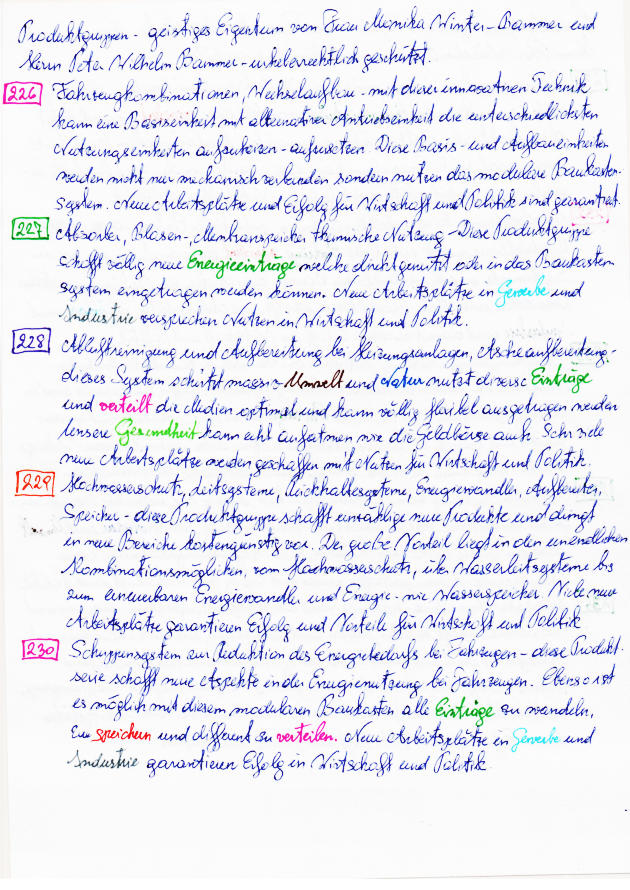 Produktgruppen - geistiges Eigentum von Frau Monika Winter-Bammer und
Herrn Peter Wilhelm Bammer - urheberrechtlich geschützt.
226 Fahrzeugkombinationen, Wechselaufbau - mit dieser innovativen Technik
kann eine Basiseinheit mit alternativer Antriebseinheit die unterschiedlichsten
Nutzungseinheiten aufzuheizen - aufzusetzen. Diese Basis- und Aufbaueinheiten
werden nicht nur mechanisch verbunden sondern nutzen das modulare Baukasten-
system. Neue Arbeitsplätze und Erfolg für Wirtschaft und Politik sind garantiert.
227 Absorber, Blasen-, Membranspeicher thermische Nutzung - Diese Produktgruppe
schafft völlig neue Energieeinträge welche direkt genutzt oder in das Baukasten
system eingetragen werden können. Neue Arbeitsplätze in Gewerbe und
Industrie versprechen Nutzen in Wirtschaft und Politik.
228 Abluftreinigung und Aufbereitung bei Heizungsanlagen, Ascheaufbereitung -
dieses System schützt massiv Umwelt und Natur nutzt diverse Einträge
und verteilt die Medien optimal und kann völlig flexibel ausgetragen werden
Unsere Gesundheit kann echt aufatmen wie die Geldbörse auch. Sehr viele
neue Arbeitsplätze werden geschaffen mit Nutzen für Wirtschaft und Politik.
229 Hochwasserschutz, Leitsysteme, Rückhaltesysteme, Energiewandler, Aufbereiter,
Speicher - diese Produktgruppe schafft unzählige neue Produkte und dringt
in neue Bereiche kostengünstig vor. Der große Vorteil liegt in den unendlichen
Kombinationsmöglichkeiten, vom Hochwasserschutz, über Wasserleitsysteme bis
zum erneuerbaren Energiewandler und Energie- wie Wasserspeicher Viele neue
Arbeitsplätze garantieren Erfolg und Vorteile für Wirtschaft und Politik
230 Schuppensystem zur Reduktion des Energiebedarfs bei Fahrzeugen - diese Produkt-
serie schafft neue Aspekte in der Energienutzung bei Fahrzeugen. Ebenso ist
es möglich mit diesem modularen Baukasten alle Einträge zu wandeln,
zu speichern und different zu verteilen. Neue Arbeitsplätze in Gewerbe und
Industrie garantieren Erfolg in Wirtschaft und Politik.